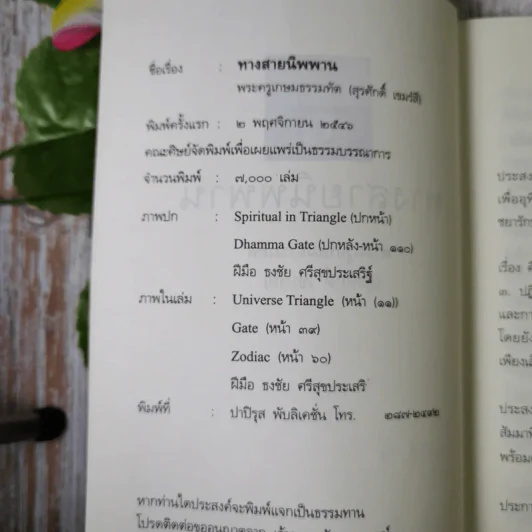 ชื่อเรื่อง : ทางสายนิพพาน
พระครูเกษมธรรมทัต (สุรศักดิ์ เขมรํสี)
พิมพ์ครั้งแรก : ๒ พฤศจิกายน ๒๕๔๖
คณะศิษย์จัดพิมพ์เพื่อเผยแพร่เป็นธรรมบรรณาการ
จำนวนพิมพ์ : ๗,๐๐๐ เล่ม
ภาพปก : Spiritual in Triangle (ปกหน้า)
Dhamma Gate (ปกหลัง-หน้า ๑๑๐)
ฝีมือ ธงชัย ศรีสุขประเสริฐ์
ภาพในเล่ม : Universe Triangle (หน้า (๑๑))
Gate (หน้า ๓๙)
Zodiac (หน้า ๖๐)
ฝีมือ ธงชัย ศรีสุขประเสริ
พิมพ์ที่ : ปาปิรุส พับลิเคชั่น โทร. ๒๘๗-๒๔๙๒
หากท่านใดประสงค์จะพิมพ์แจกเป็นธรรมทาน
โปรดติดต่อขออนุญาตจาก
ประสง
เพื่ออุทิ
ชยารักษ
เรื่อง
๓. ปฏิ
และกา
โดยยัง
เพียงเล็
ประสง
สัมมาทิ
พร้อม
ประกา